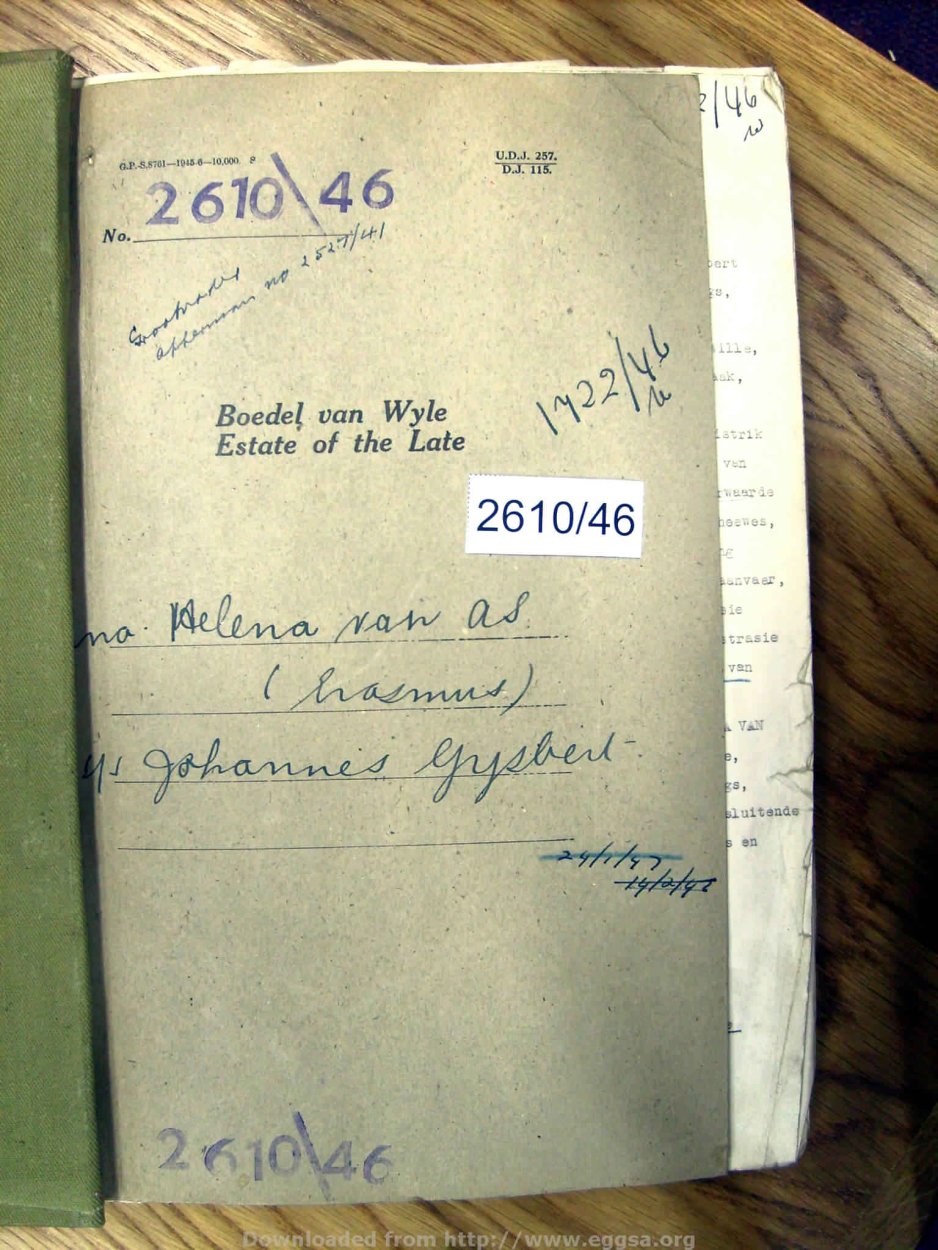 2/46
G.P.-S.8761—1945-6—10,000. S
U.D.J. 257.
D.J. 115.
No. 2610\46
Grootvader
Apperman no 2527/41
1722/46
Boedel van Wyle
Estate of the Late
2610/46
na. Helena van As
(Erasmus)
Johannes Gysbert
24/1/47
14/2/46
2610\46
bert
gs,
ille,
aak,
istrik
van
rwaarde
heewes,
ng
aanvaar,
sie
trasie
van
A VAN
e,
gs,
sluitende
s en
Downloaded from http://www.eggsa.org